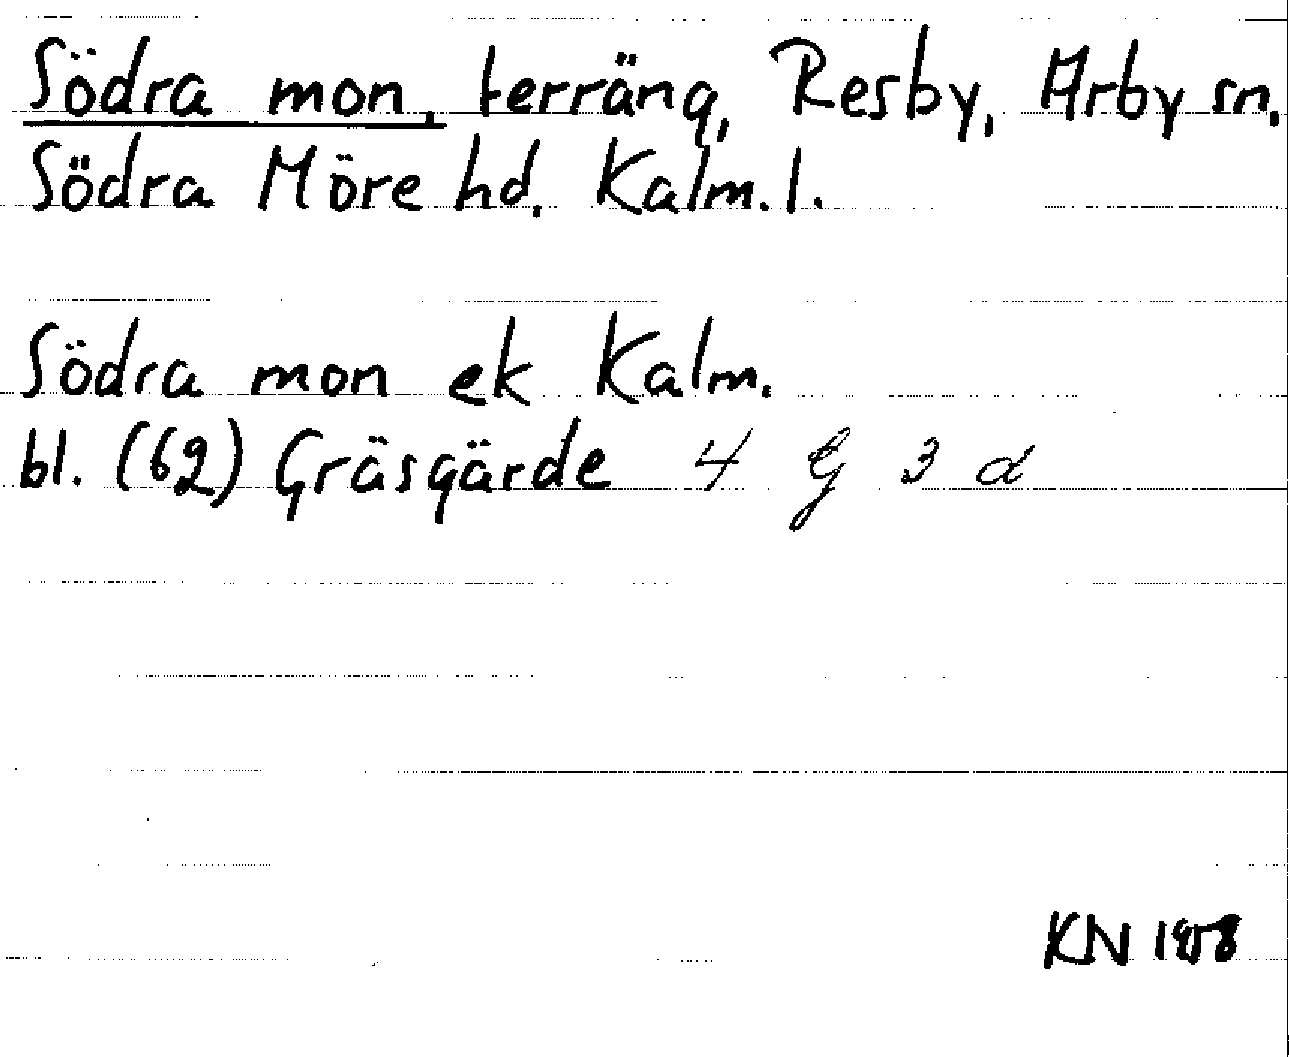 Södra mon, terräng, Resby, Arby sn.
Södra Möre hd. Kalm. l.
Södra mon ek Kalm.
bl. (62) Gräsgärde 4 G 3 d
KN